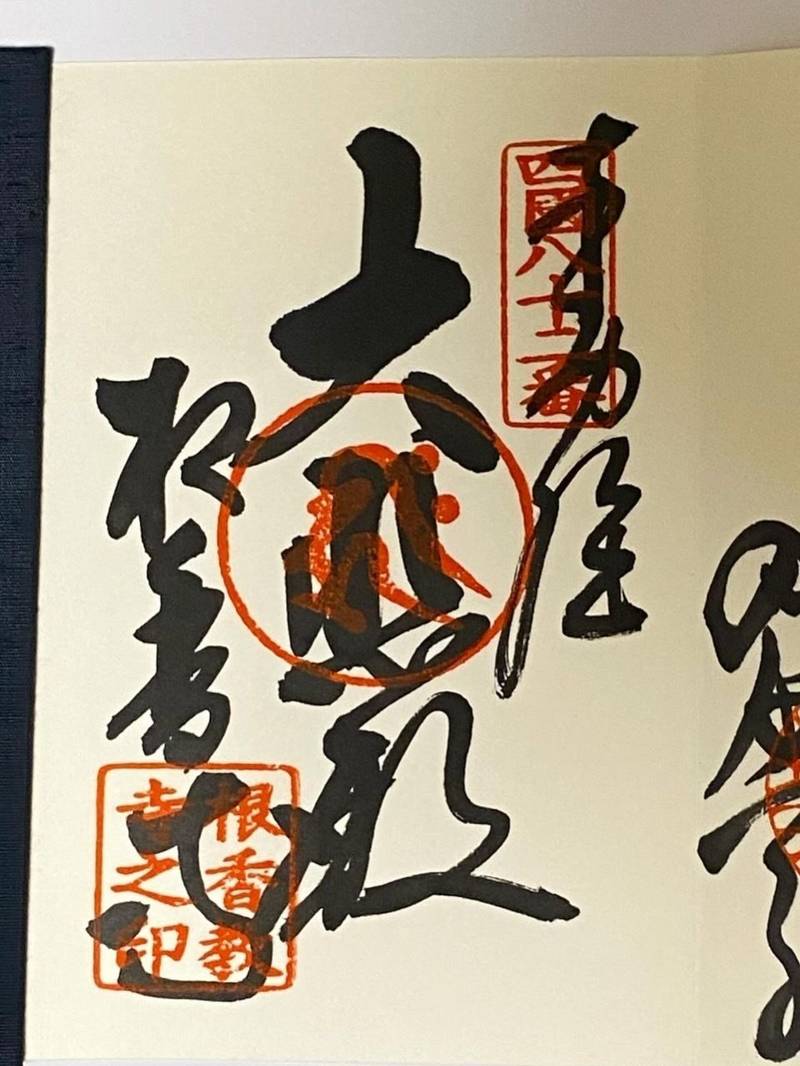 奉納経
四國八十二番
大悲殿
根香寺
根香教
寺之印